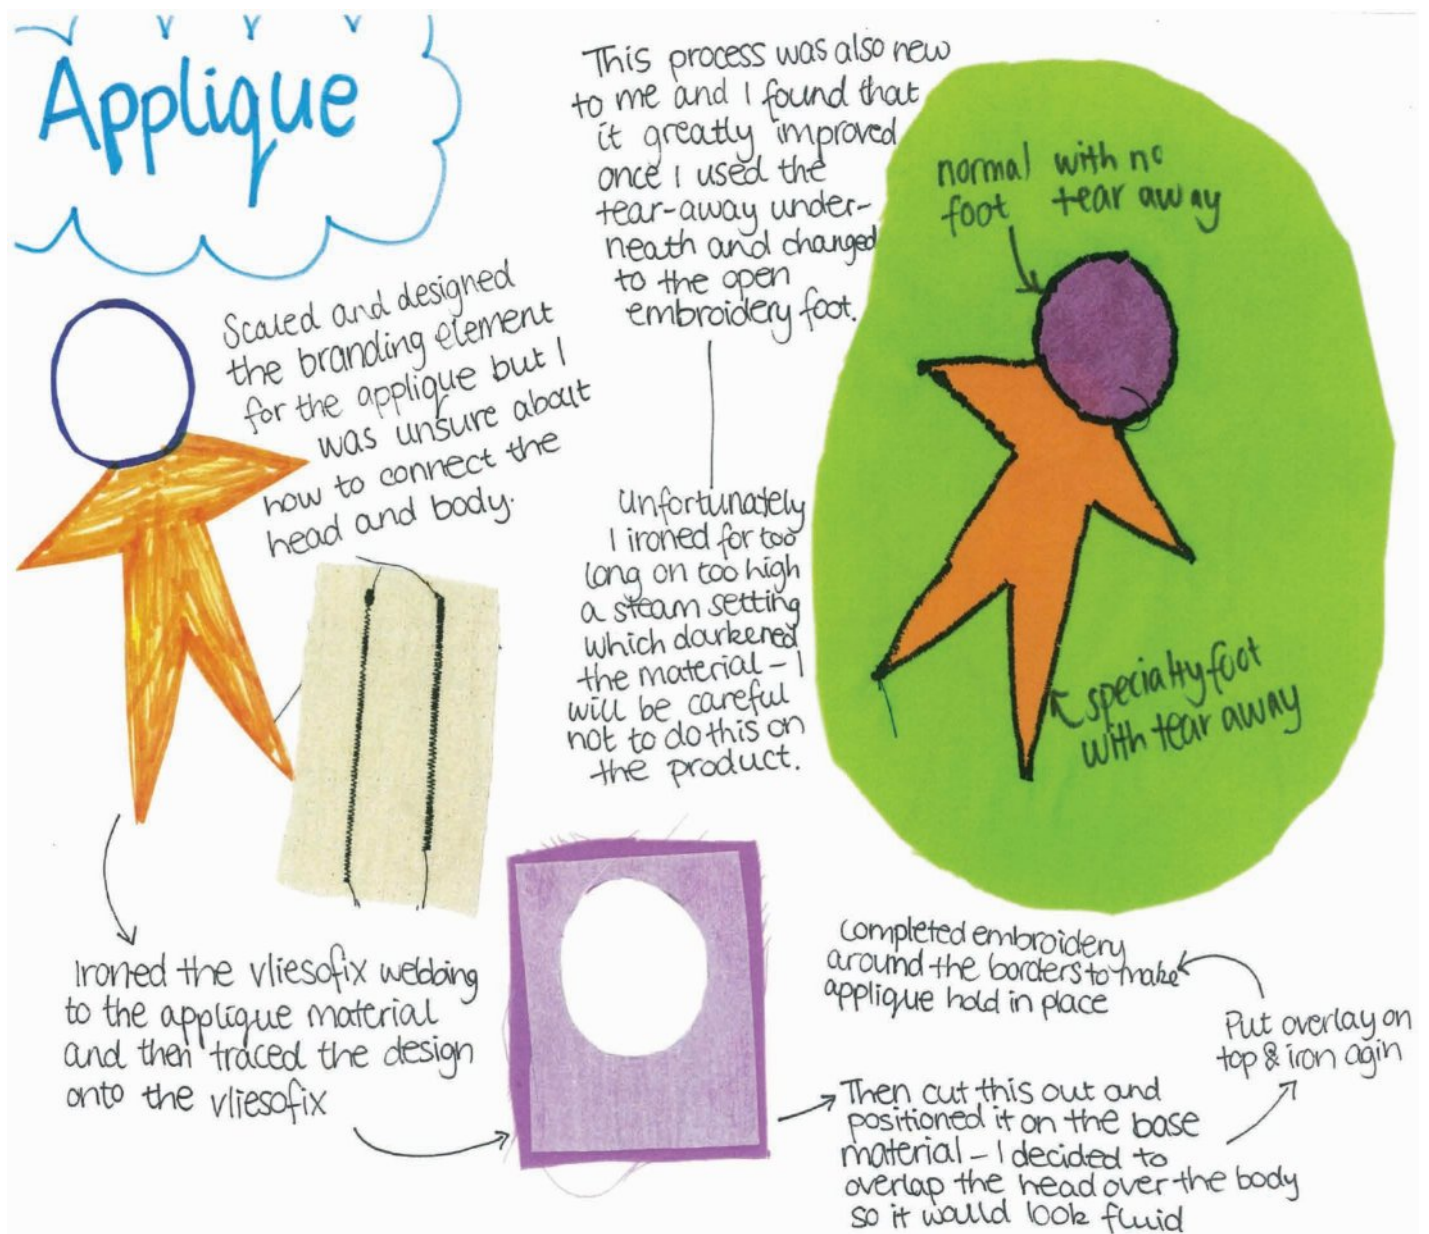 Applique
Scaled and designed
the branding element
for the applique but I
was unsure about
how to connect the
head and body.
This process was also new
to me and I found that
it greatly improved
once I used the
tear-away under-
neath and changed
to the open
embroidery foot.
Unfortunately
I ironed for too
long on too high
a steam setting
which darkened
the material - I
will be careful
not to do this on
the product.
normal with no
foot tear away
specialty foot
with tear away
Ironed the vliesofix webbing
to the applique material
and then traced the design
onto the vliesofix
Then cut this out and
positioned it on the base
material - I decided to
overlap the head over the body
so it would look fluid
Put overlay on
top & iron agin
completed embroidery
around the borders to make
applique hold in place